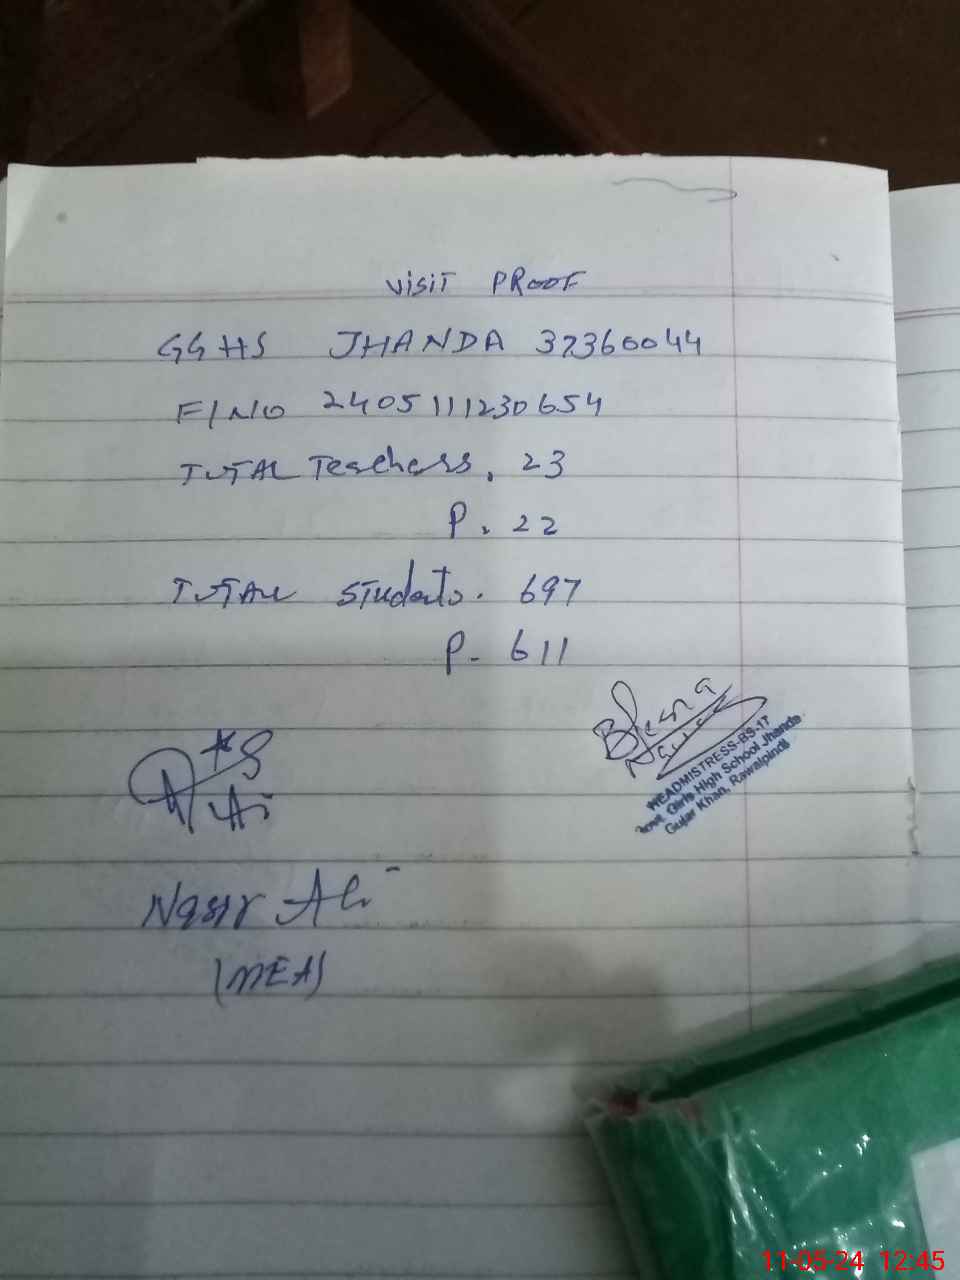 Visit PROOF
GGHS JHANDA 37360044
F/NO 2405111230654
TOTAL Teachers. 23
P. 22
TOTAL Students. 697
P- 611
HEADMISTRESS-BS-17
Govt. Girls High School Jhanda
Gujar Khan, Rawalpindi
Nasir Ali
(MEA)
11-05-24 12:45